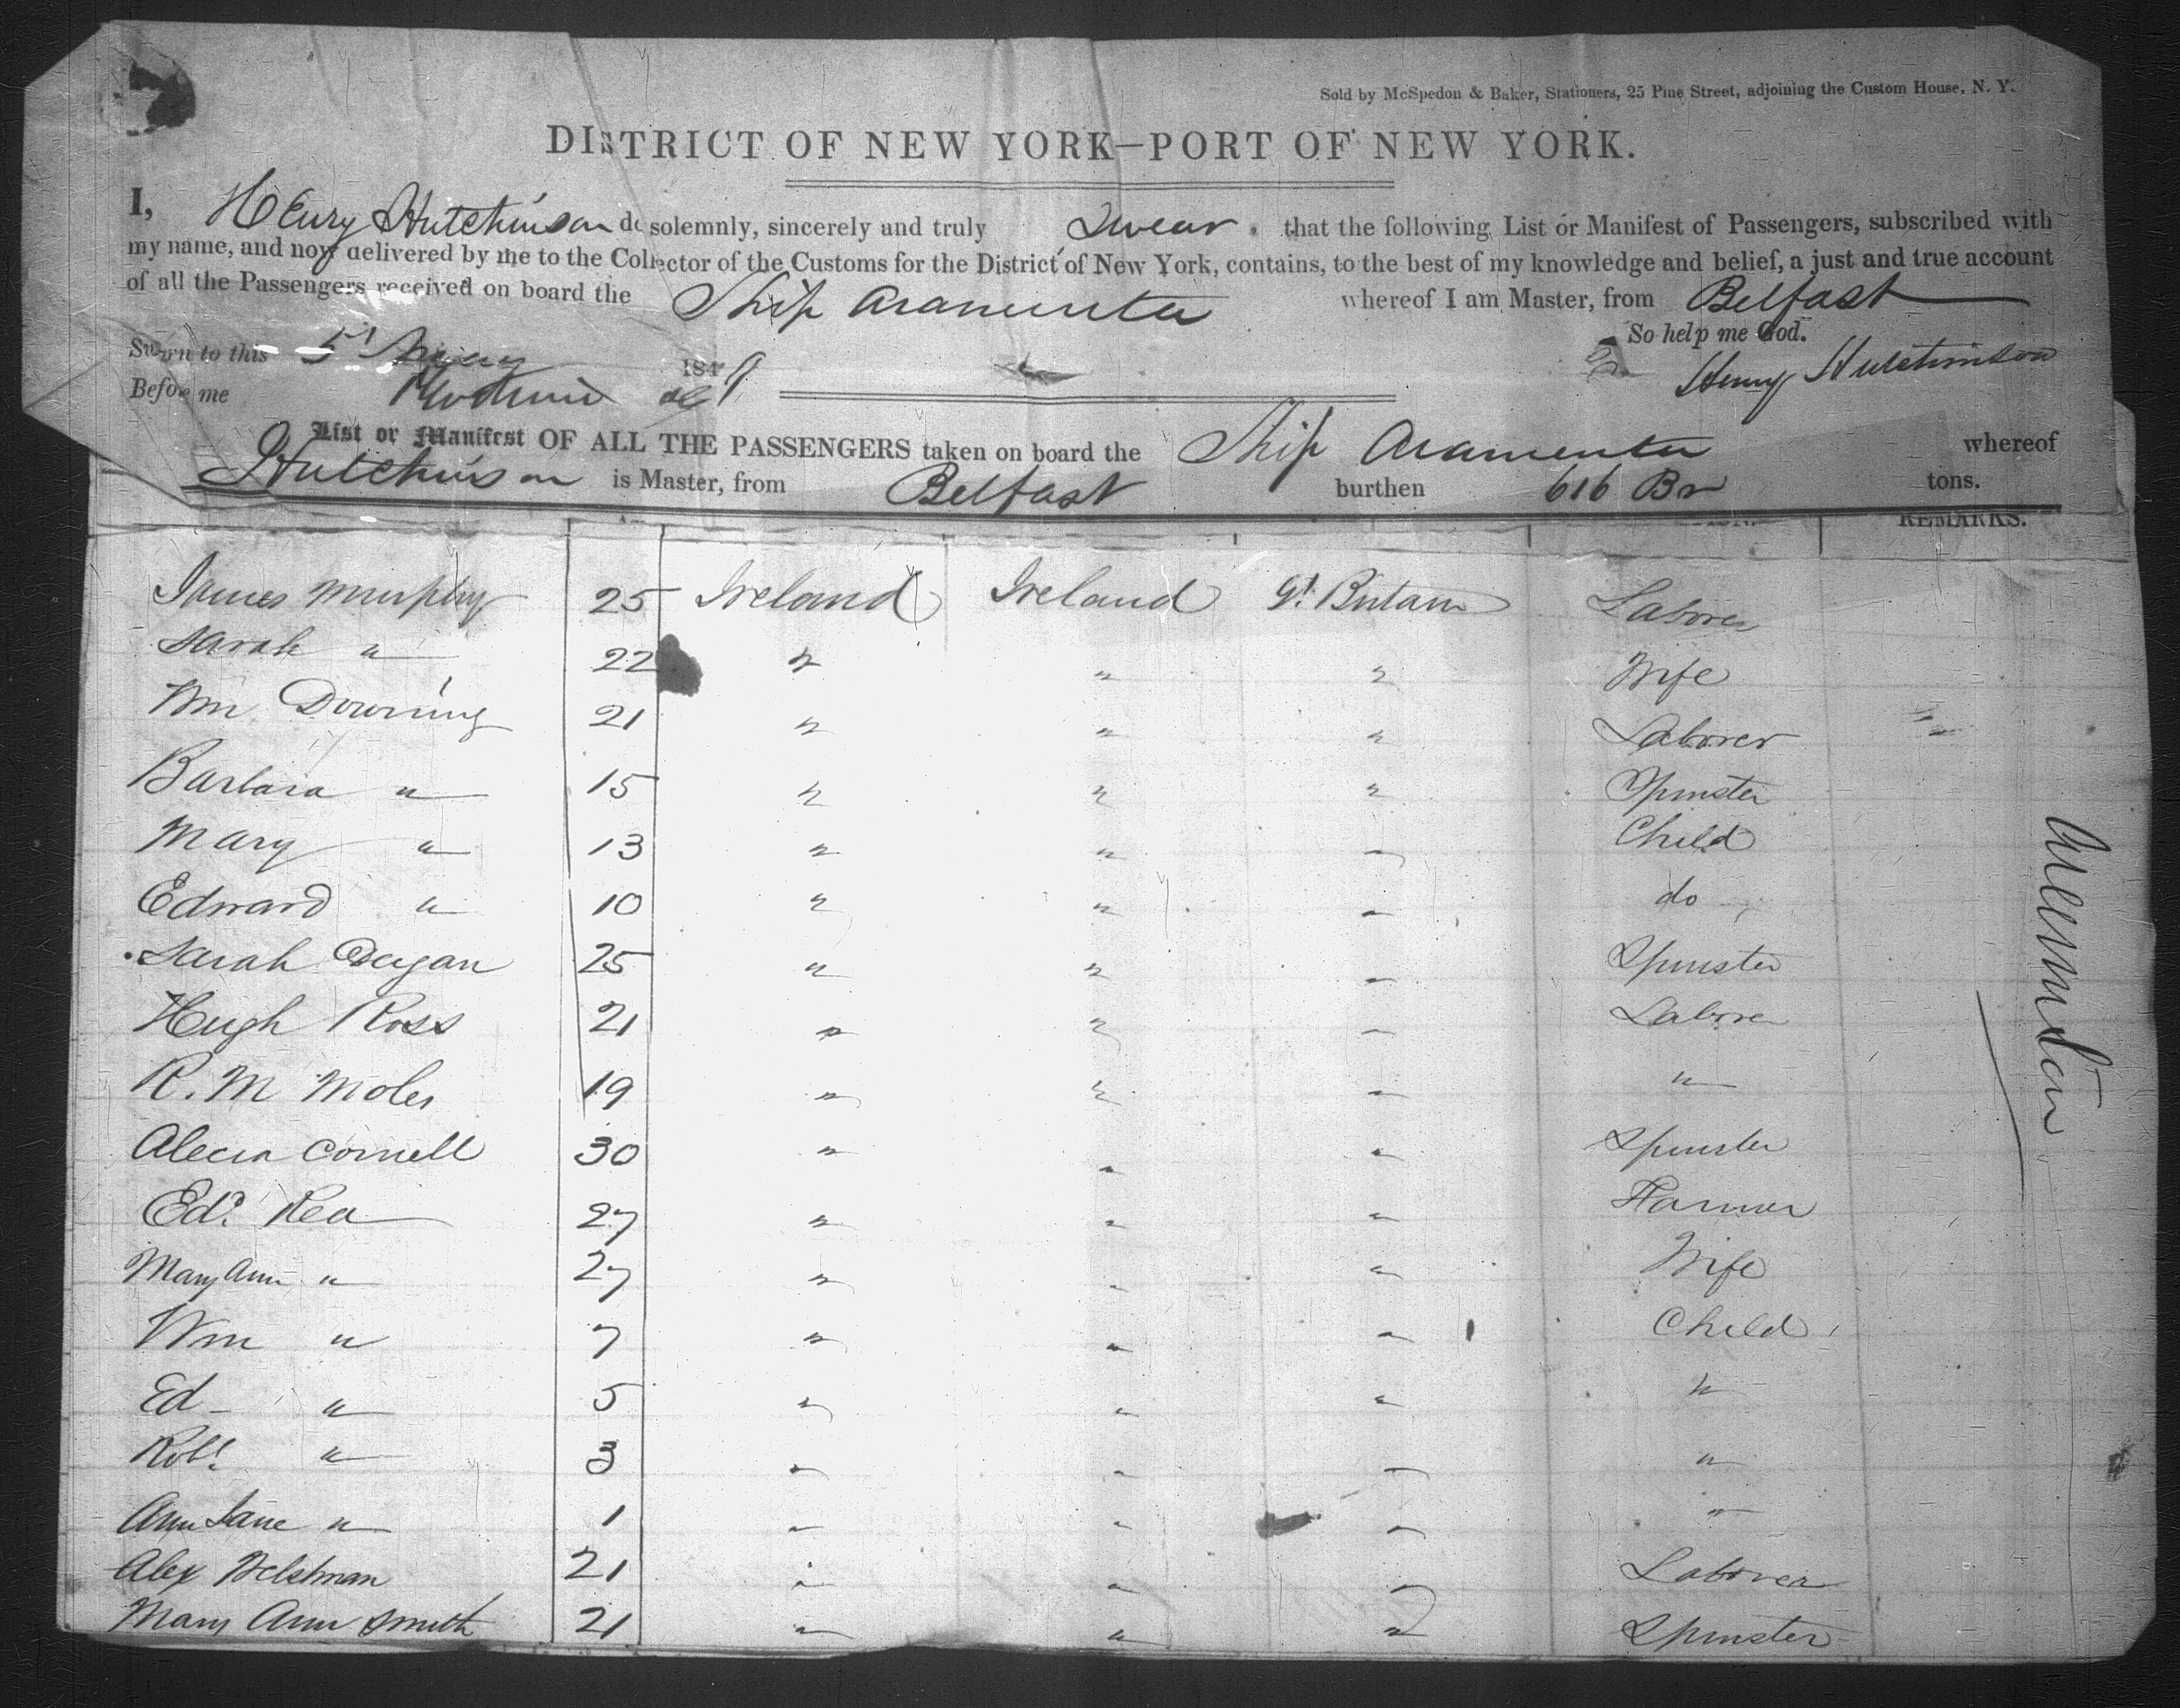 Sold by McSpedon & Baker, Stationers, 25 Pine Street, adjoining the Custom House, N. Y.
DISTRICT OF NEW YORK—PORT OF NEW YORK.
I, Henry Hutchinson do solemnly, sincerely and truly Swear that the following List or Manifest of Passengers, subscribed with
my name, and now delivered by me to the Collector of the Customs for the District of New York, contains, to the best of my knowledge and belief, a just and true account
of all the Passengers received on board the Ship Aramenta whereof I am Master, from Belfast
So help me God.
Sworn to this 5t May 1849 Henry Hutchinson
Before me
List or Manifest OF ALL THE PASSENGERS taken on board the Ship Aramenta whereof
Hutchinson is Master, from Belfast burthen 616 tons.
REMARKS.
James Murphy 25 Ireland Ireland Gt. Britain Laborer
Sarah " 22 " " " Wife
Wm Downing 21 " " " Laborer
Barbara " 15 " " " Spinster
Mary " 13 " " " Child
Edward " 10 " " " do
Sarah Deegan 25 " " " Spinster
Hugh Ross 21 " " " Laborer
R. M Moles 19 " " " "
Alecia Cornell 30 " " " Spinster
Edd. Rea 27 " " " Farmer
Mary Ann " 27 " " " Wife
Wm " 7 " " " Child
Ed " 5 " " " "
Robt. " 3 " " " "
Ann Jane " 1 " " " "
Alex 21 " " " Laborer
Mary Ann Smith 21 " " " Spinster